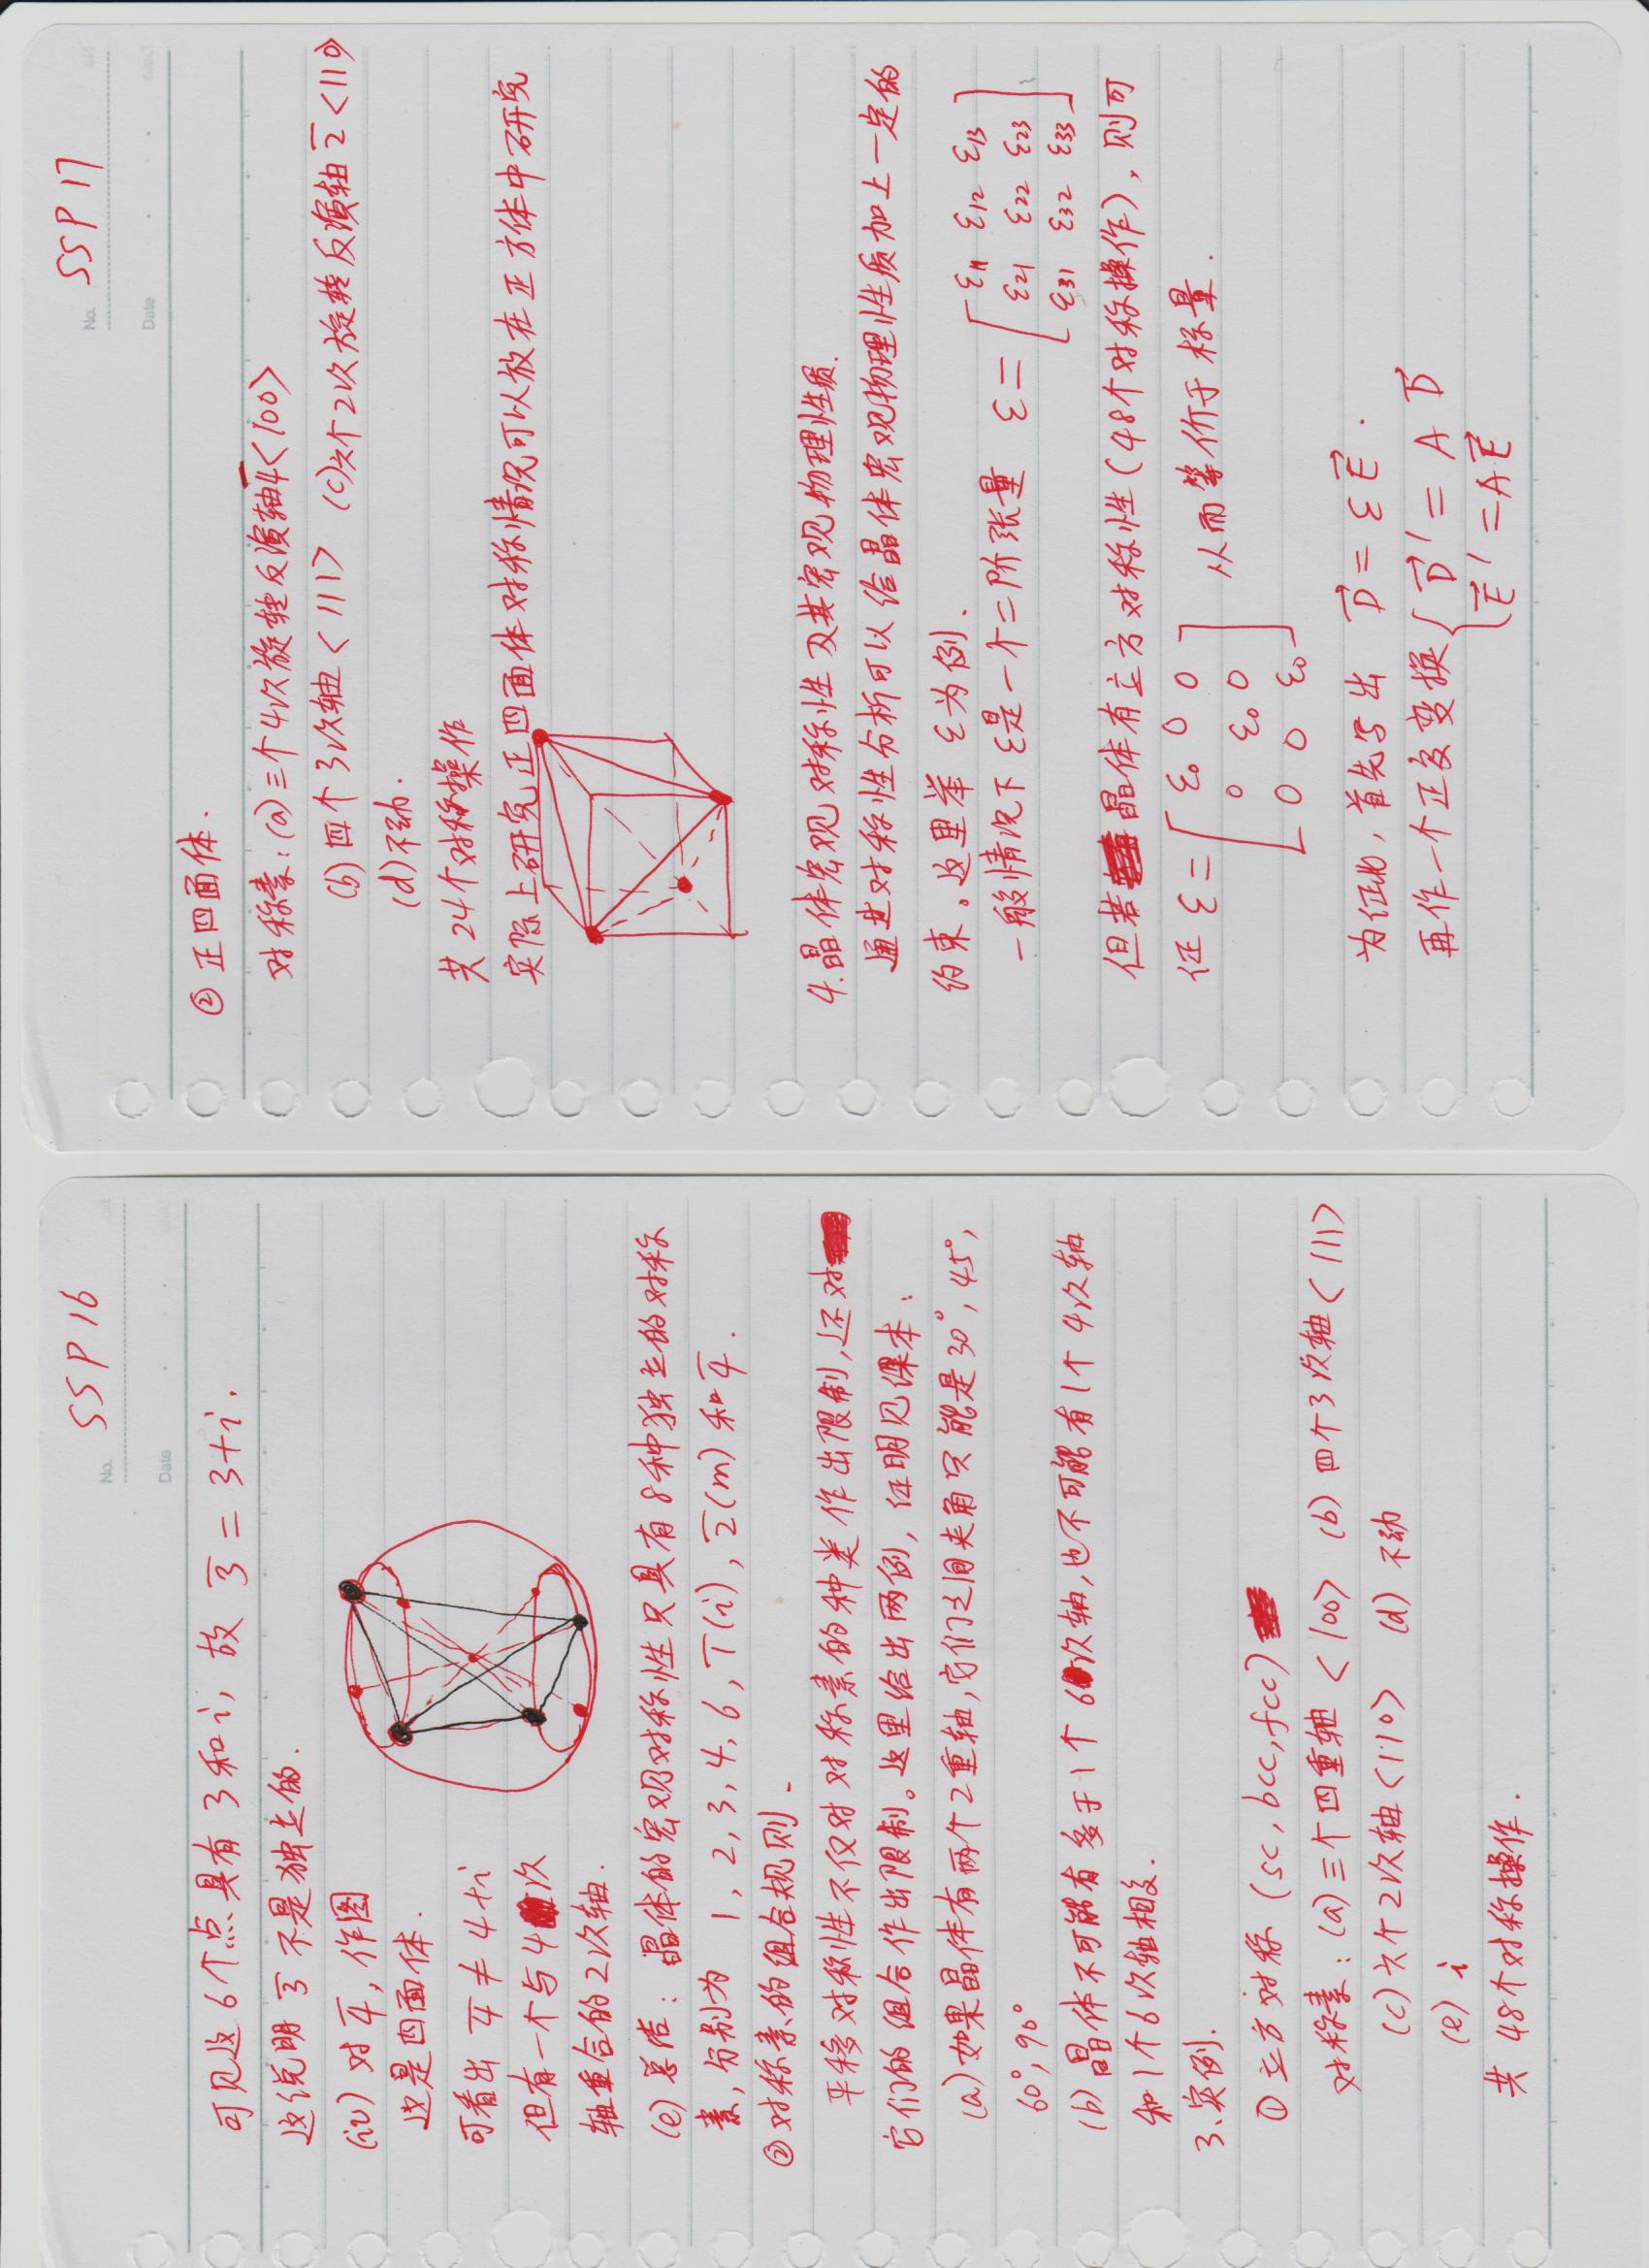 SSP 16
No.
Date
可见这6个点具有 3 和 i, 故 3̅ = 3+i.
这说明 3̅ 不是独立的.
(iv) 对 4̅, 作图
这是四面体.
可看出 4̅ ≠ 4+i
但有一个与4次
轴重合的2次轴.
(e) 总结: 晶体的宏观对称性只具有8种独立的对称
素, 分别为 1, 2, 3, 4, 6, 1̅(i), 2̅(m) 和 4̅.
② 对称素的组合规则.
平移对称性不仅对对称素的种类作出限制, 还对
它们的组合作出限制。这里给出两例, 证明见课本:
(a) 如果晶体有两个2重轴, 它们之间夹角只能是30°, 45°,
60°, 90°
(b) 晶体不可能有多于1个6次轴, 也不可能有1个4次轴
和1个6次轴相交.
3、实例.
① 立方对称 (sc, bcc, fcc)
对称素: (a) 三个四重轴 <100> (b) 四个3次轴 <111>
(c) 六个2次轴 <110> (d) 不动
(e) i
共 48个对称操作.
SSP 17
No.
Date
② 正四面体.
对称素: (a) 三个4次旋转反演轴4̅<100>
(b) 四个3次轴 <111> (c) 六个2次旋转反演轴 2̅ <110>
(d) 不动.
共24个对称操作
实际上研究正四面体对称情况可以放在正方体中研究
4. 晶体宏观对称性及其宏观物理性质.
通过对称性分析可以给晶体宏观物理性质加上一定的
约束。这里举 ε 为例.
一般情况下 ε是一个二阶张量 ε = [ ε11 ε12 ε13
ε21 ε22 ε23
ε31 ε32 ε33 ]
但若晶体有立方对称性 (48个对称操作), 则可
证 ε = [ ε0 0 0
0 ε0 0
0 0 ε0 ] 从而等价于标量.
为证此, 首先写出 D⃗ = ε E⃗.
再作一个正交变换 { D⃗' = A D⃗
E⃗' = A E⃗